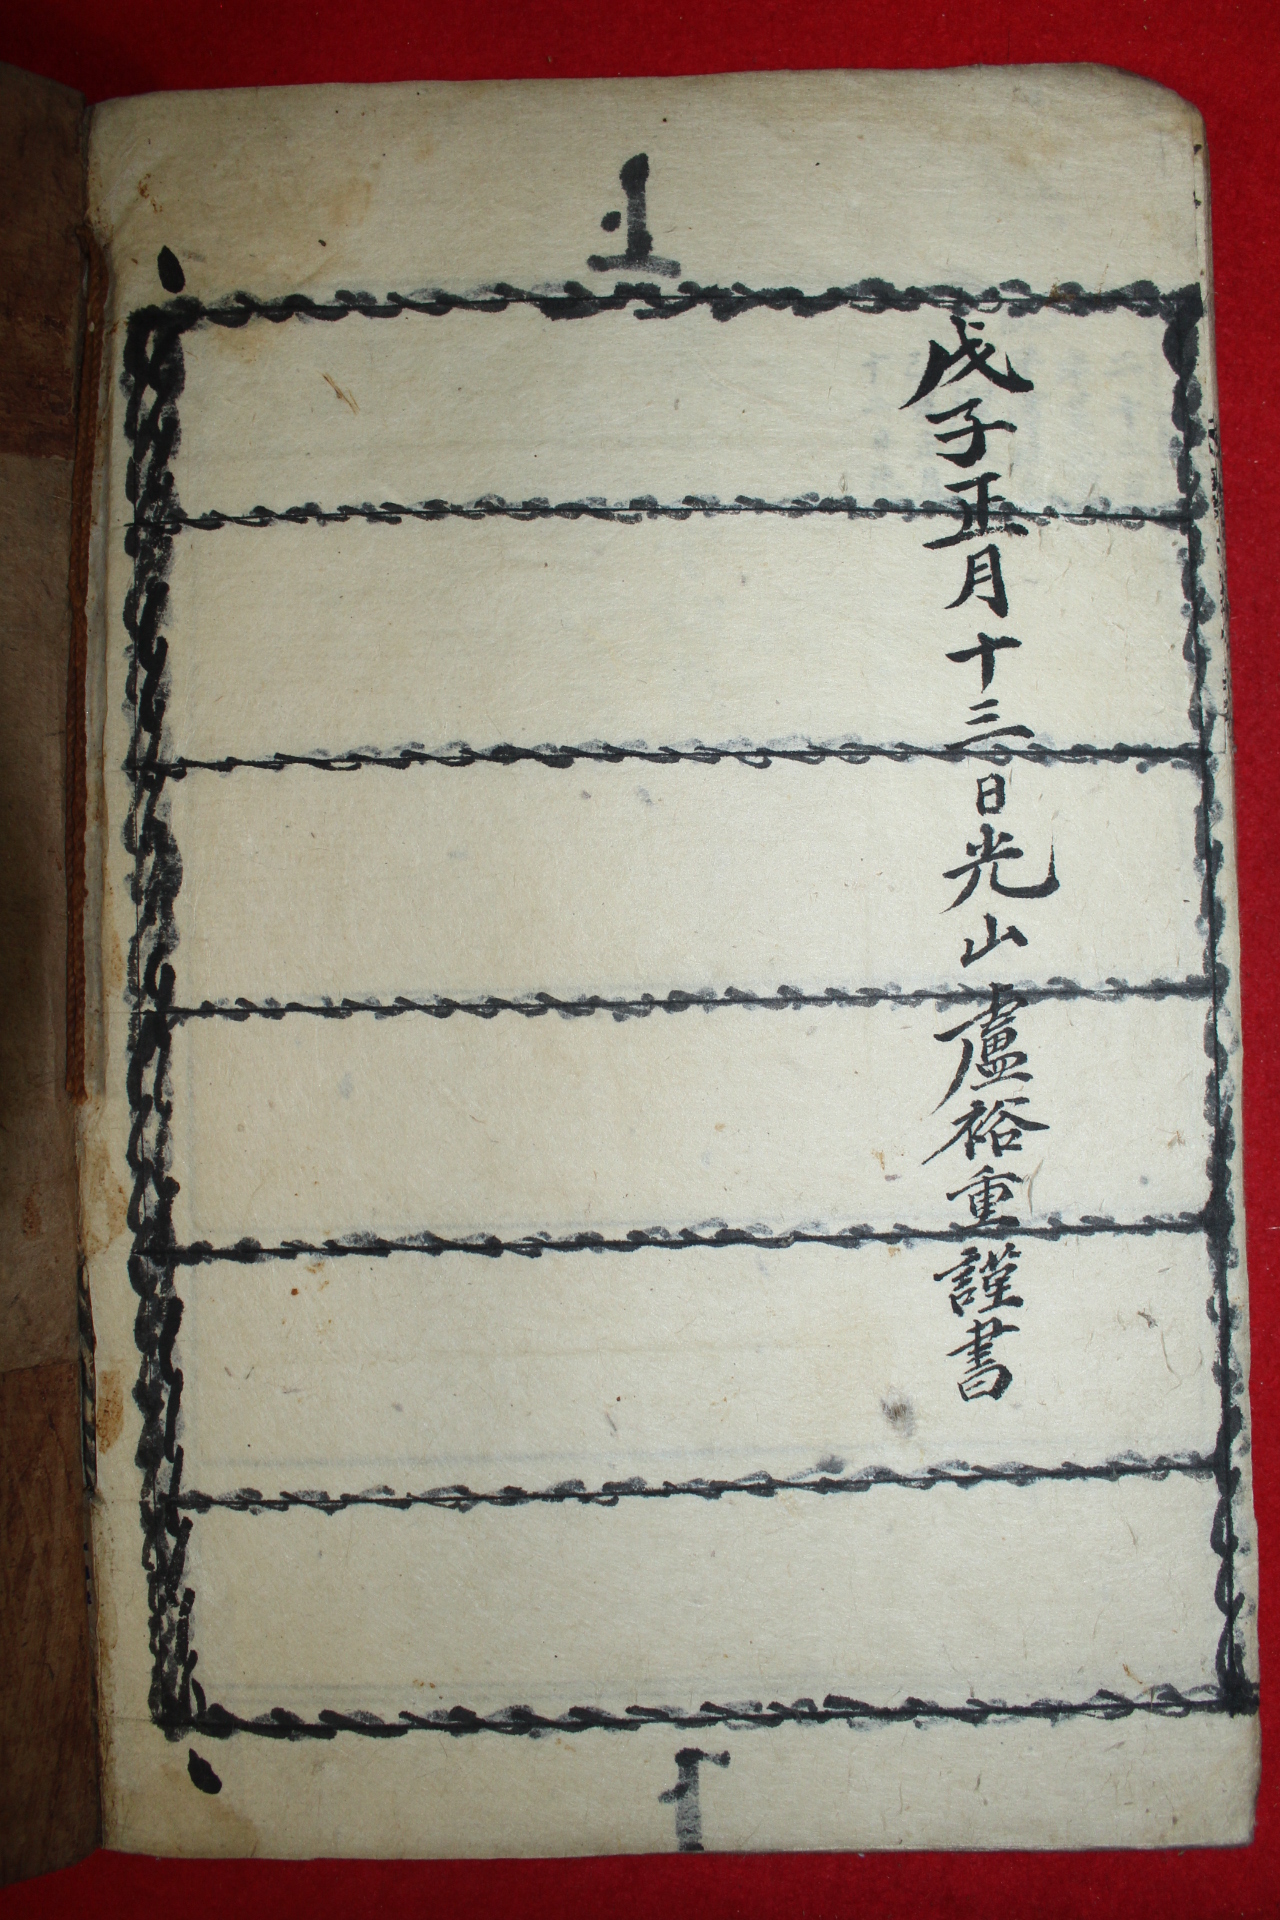 1
戊子正月十三日光山盧裕重謹書
1